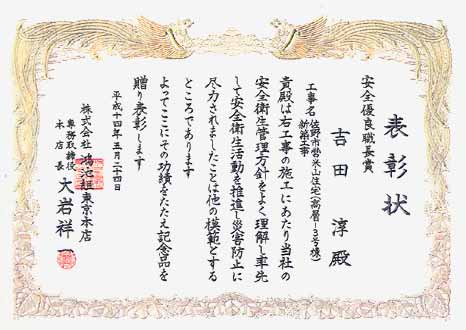 表彰状
安全優良職長賞
吉田 淳殿
工事名 佐野市営米山住宅(高層-3号棟)
新築工事
貴殿は右工事の施工にあたり当社の
安全衛生管理方針をよく理解し率先
して安全衛生活動を推進し災害防止に
尽力されましたことは他の模範とする
ところであります
よってここにその功績をたたえ記念品を
贈り表彰します
平成十四年五月二十四日
株式会社 鴻池組東京本店
専務取締役
本店長 大岩祥一